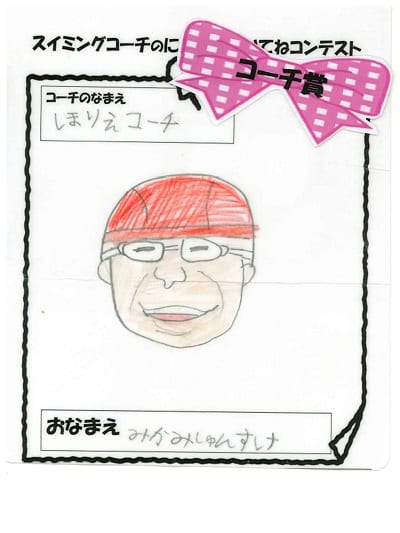 スイミングコーチのに てねコンテスト
コーチ賞
コーチのなまえ
ほりえコーチ
おなまえ みかみしゅんすけ